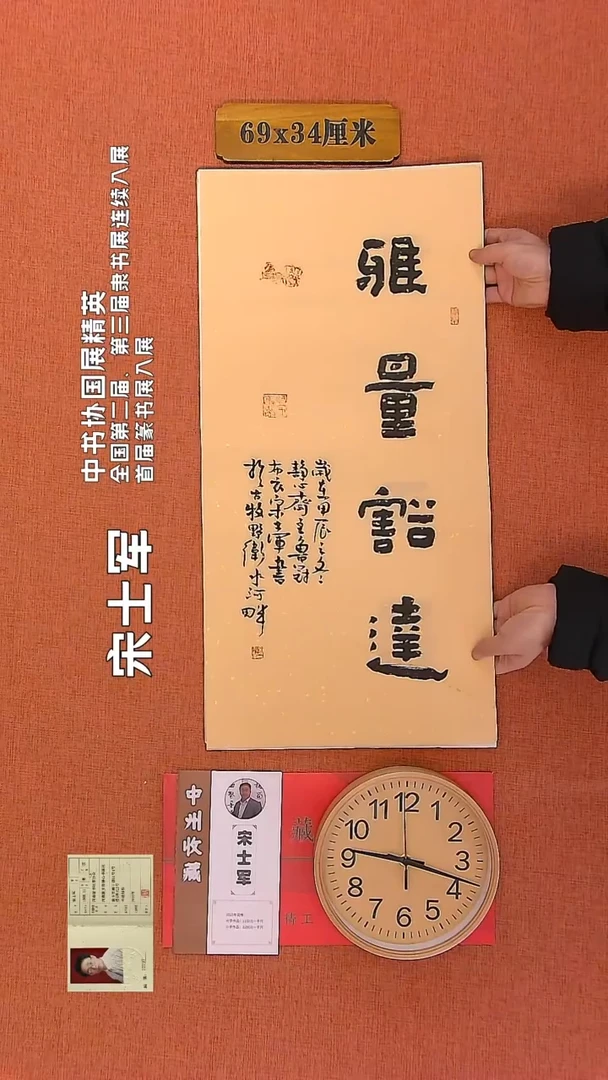 69x34厘米
中书协国展精英
全国第二届、第三届隶书展连续入展
首届篆书展入展
宋士军
雅量豁達
歲在甲辰之冬
静心齋主魯
布衣宋士軍書
於古牧野衛水河畔
宋士军
藏
12
1
2
3
4
5
6
7
8
9
10
11